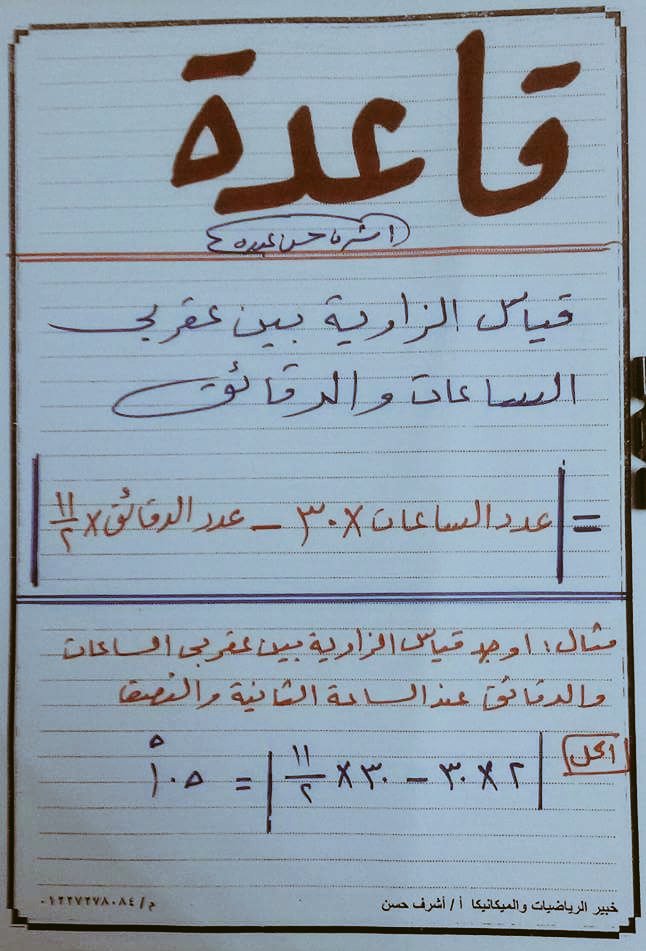 قاعدة
اشرف حسن عبده
قياس الزاوية بين عقربي
الساعات والدقائق
= | عدد الساعات × ٣٠ – عدد الدقائق × ١١/٢ |
مثال: اوجد قياس الزاوية بين عقربي الساعات
والدقائق عند الساعة الثانية والنصف
الحل | ٢ × ٣٠ – ٣٠ × ١١/٢ | = ١٠٥°
خبير الرياضيات والميكانيكا أ / أشرف حسن م / ٠١٢٢٧٢٧٨٠٨٤